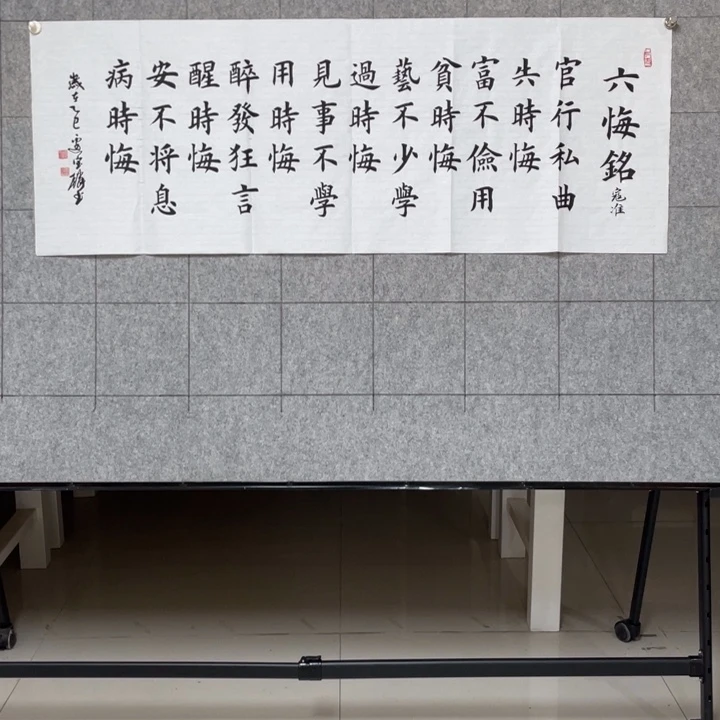 六悔銘
寇准
官行私曲
失時悔
富不儉用
貧時悔
藝不少學
過時悔
見事不學
用時悔
醉發狂言
醒時悔
安不将息
病時悔
歲在乙巳